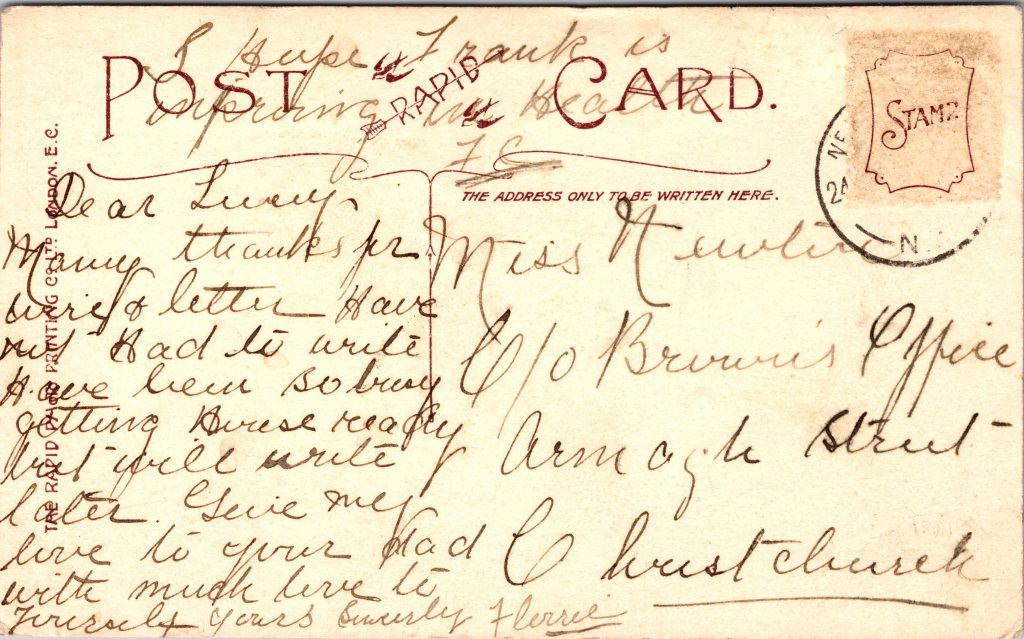 I Hope Frank is
improving in Health
F C
POST CARD.
RAPID
STAMP
THE ADDRESS ONLY TO BE WRITTEN HERE.
THE RAPID PHOTO PRINTING CO LTD LONDON. E.C.
NE
24
N
Dear
Many thanks for
wire & letter Have
not Had to write
Have been so busy
getting House ready
but will write
later. Give my
love to your dad
with much love to
Yourself Yours Sincerely Florrie
Miss Newton
C/o Brown's Office
Armagh Street
Christchurch